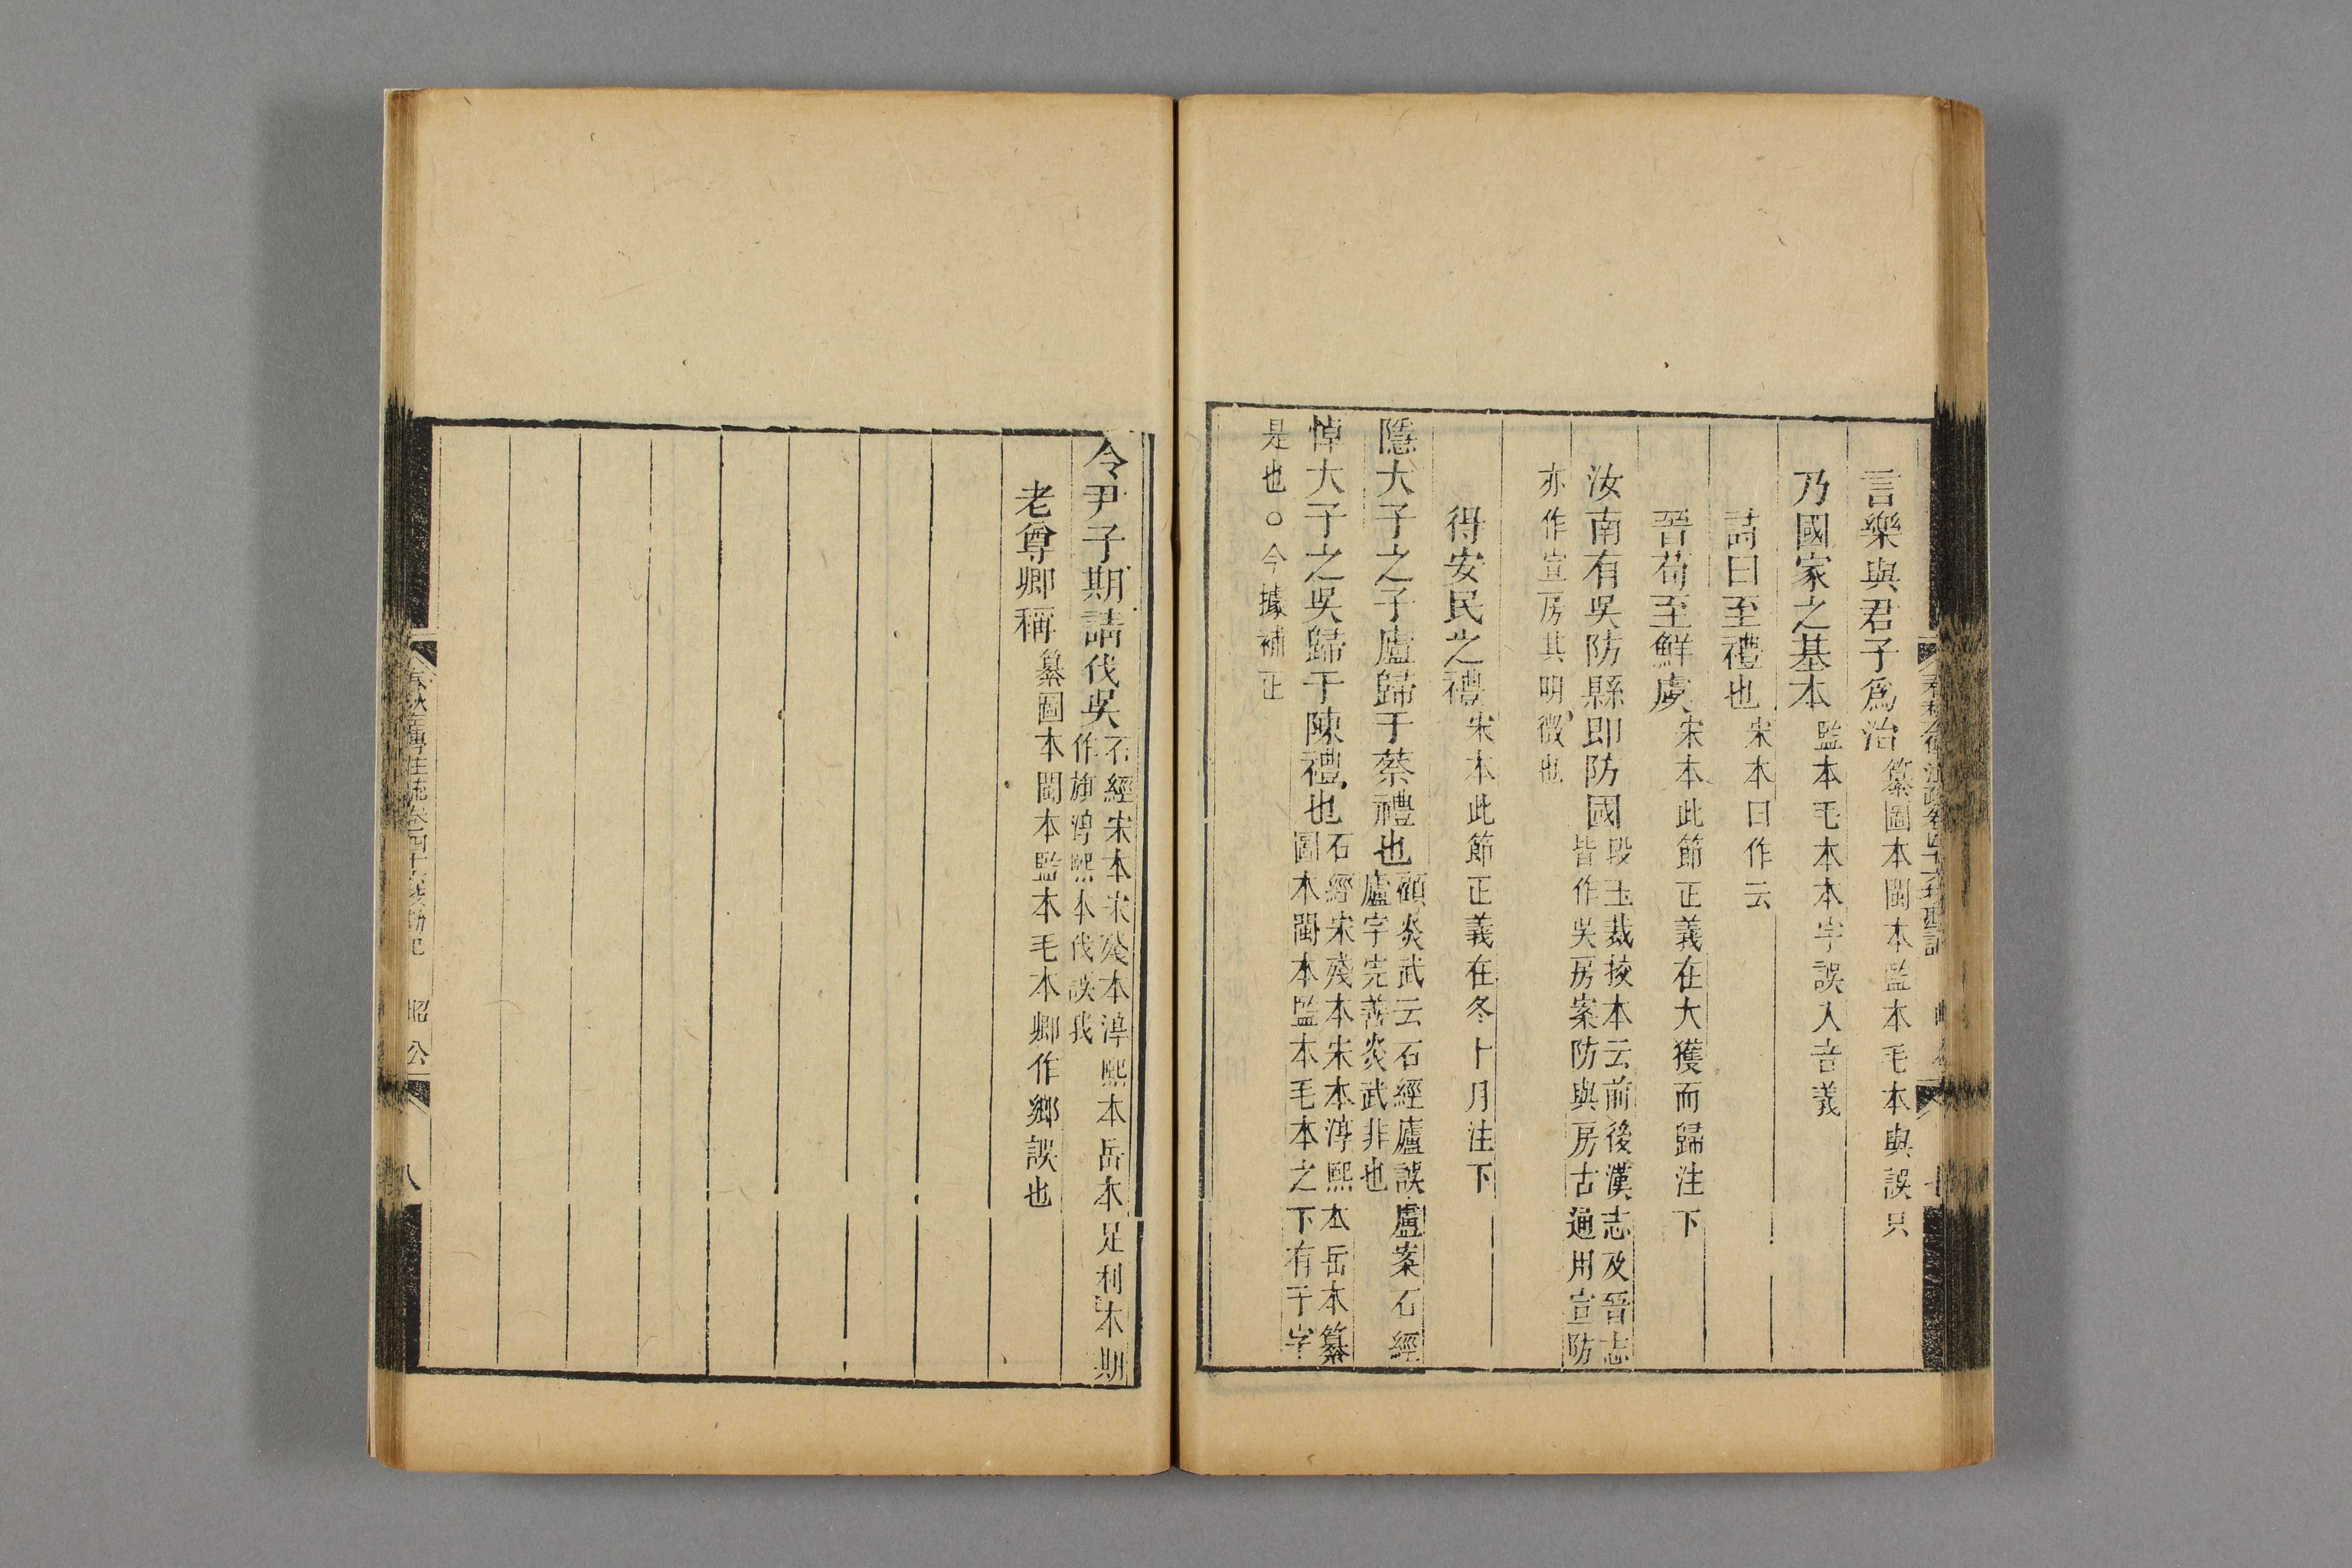 言樂與君子爲治纂圖本閩本監本毛本與誤只
乃國家之基本監本毛本本字誤入音義
詩曰至禮也宋本曰作云
晉荀至鮮虞宋本此節正義在大獲而歸注下
汝南有吳防縣即防國段玉裁挍本云前後漢志及晉志
皆作吳房案防與房古通用宣防
亦作宣房其明徵也
得安民之禮宋本此節正義在冬十月注下
隱大子之子廬歸于蔡禮也顧炎武云石經廬誤盧案石經
廬字完善炎武非也
悼大子之吳歸于陳禮也石經宋殘本宋本淳熙本岳本纂
圖本閩本監本毛本之下有子字
是也○今據補正
令尹子期請伐吳石經宋本宋殘本淳熙本岳本足利本期
作旗淳熙本伐誤我
老尊卿稱纂圖本閩本監本毛本卿作鄉誤也
昭公
八